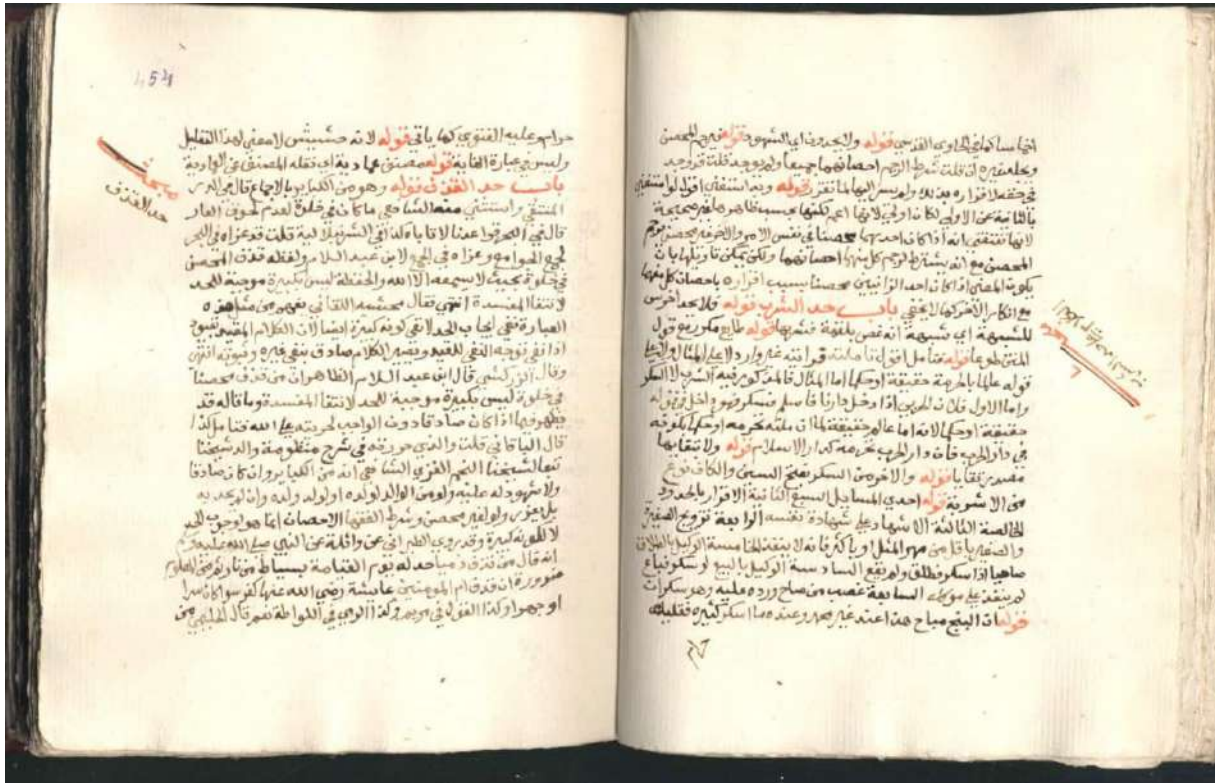 انهما سيان كما في الحاوي القدسي قوله ولا يحدون اي الشهود قوله فيرجم المحصن
ويجلد غيره ان قلت شرط الرجم احصانهما جميعا ولم يوجد قلت قد وجد
في حقه لاقراره به قوله وبه استغنى اقول لو استغنى
بالثانية عن الاولى لكان اولى لانها اعم لكنها بحسب ظاهرها غير صحيحة
لانها تقتضي انه اذا كان احدهما محصنا في نفس الامر والاخر غير محصن يرجم
المحصن مع انه يشترط لرجم كل منهما احصانهما ولكن يمكن تاويلها بان
يكون المعنى اذا كان احد الزانيين محصنا بسبب اقراره باحصان كل منهما
مع انكار الاخر كما لا يخفى باب حد الشرب قوله فلا يحد اخرس
للشبهة اي شبهة انه غص بلقمة فشربها قوله طايع مكرر مع قول
المتن طوعا قوله فتامل اقول تاملته فرايته غير وارد لا على المثال ولا على
قوله عالما بالحرمة حقيقة او حكما اما المثال فالمذكور فيه الشرب لا السكر
واما الاول فلان الحربي اذا دخل دارنا فاسلم فسكر فهو داخل في قوله
حقيقة او حكما لانه اما عالم حقيقة لما ان ملته تحرمه او حكما بكونه
في دار الحرب فان دار الحرب كدار الاسلام قوله ولا تقايها
مصدر تقايا قوله والاخر من السكر بفتح السين والكاف نوع
من الاشربة قوله احدى المسايل السبع الثانية الاقرار بالحدود
الخالصة الثالثة الاشهاد على شهادة نفسه الرابعة تزويج الصغيرة
والصغير باقل من مهر المثل او باكثر فانه لا ينفذ الخامسة الوكيل بالطلاق
صاحيا اذا سكر فطلق ولم يقع السادسة الوكيل بالبيع لو سكر فباع
لم ينفذ على موكله السابعة غصب من صاح ورده عليه وهو سكران
قوله ان البنج مباح هذا عند غير محمد وعنده ما اسكر كثيره فقليله
حد
454
حرام وعليه الفتوى كما ياتي قوله لانه حشيش لا معنى لهذا التعليل
وليس في عبارة الغاية قوله مصنف عمادية اي نقله المصنف عن العمادية
باب حد القذف قوله وهو من الكباير بالاجماع قال في الدر
المنتقى واستثنى منه الشافعي ما كان في خلوة لعدم لحوق العار
قال في البحر قواعدنا لا تاباه قلت قد عزاه في البحر
لجمع الجوامع وعزاه في الجمع لابن عبد السلام ولفظه قذف المحصن
في خلوة بحيث لا يسمعه الا الله والحفظة ليس بكبيرة موجبة للحد
لانتفا المفسدة انتهى فقال محشيه اللقاني يفهم من مثل هذه
العبارة نفي ايجاب الحد لا نفي كونه كبيرة ايضا لان الكلام المقيد
اذا نفي توجه النفي للقيد ويصير الكلام صادق بنفي غيره وثبوته انتهى
وقال الزركشي قال ابن عبد السلام الظاهر ان من قذف محصنا
في خلوة ليس بكبيرة موجبة للحد لانتفا المفسدة وما قاله قد
يظهر فيما اذا كان صادقا دون الكاذب لجريته على الله فتامل كذا
قال الباقاني قلت والذي حرره في شرح منظومة والد شيخنا
تبعا لشيخنا النجم الغزي الشافعي انه من الكباير وان كان صادقا
ولا شهود له عليه ولو من الوالد لولده او لولد ولده وان لم يحد به
بل يعزر ولو لغير محصن وشرط الفقها الاحصان انما هو لوجوب الحد
لا لكونه كبيرة وقد روى الطبراني عن واثلة عن النبي صلى الله عليه وسلم
انه قال من قذف ذميا حد له يوم القيامة بسياط من نار ومن المعلوم
ضرورة ان قذف ام المومنين عايشة رضي الله عنها كفر سوا كان سرا
او جهرا وكذا القول في مريم وكذا الرمي في اللواطة نعم قال الحليمي من
مبحث
حد القذف